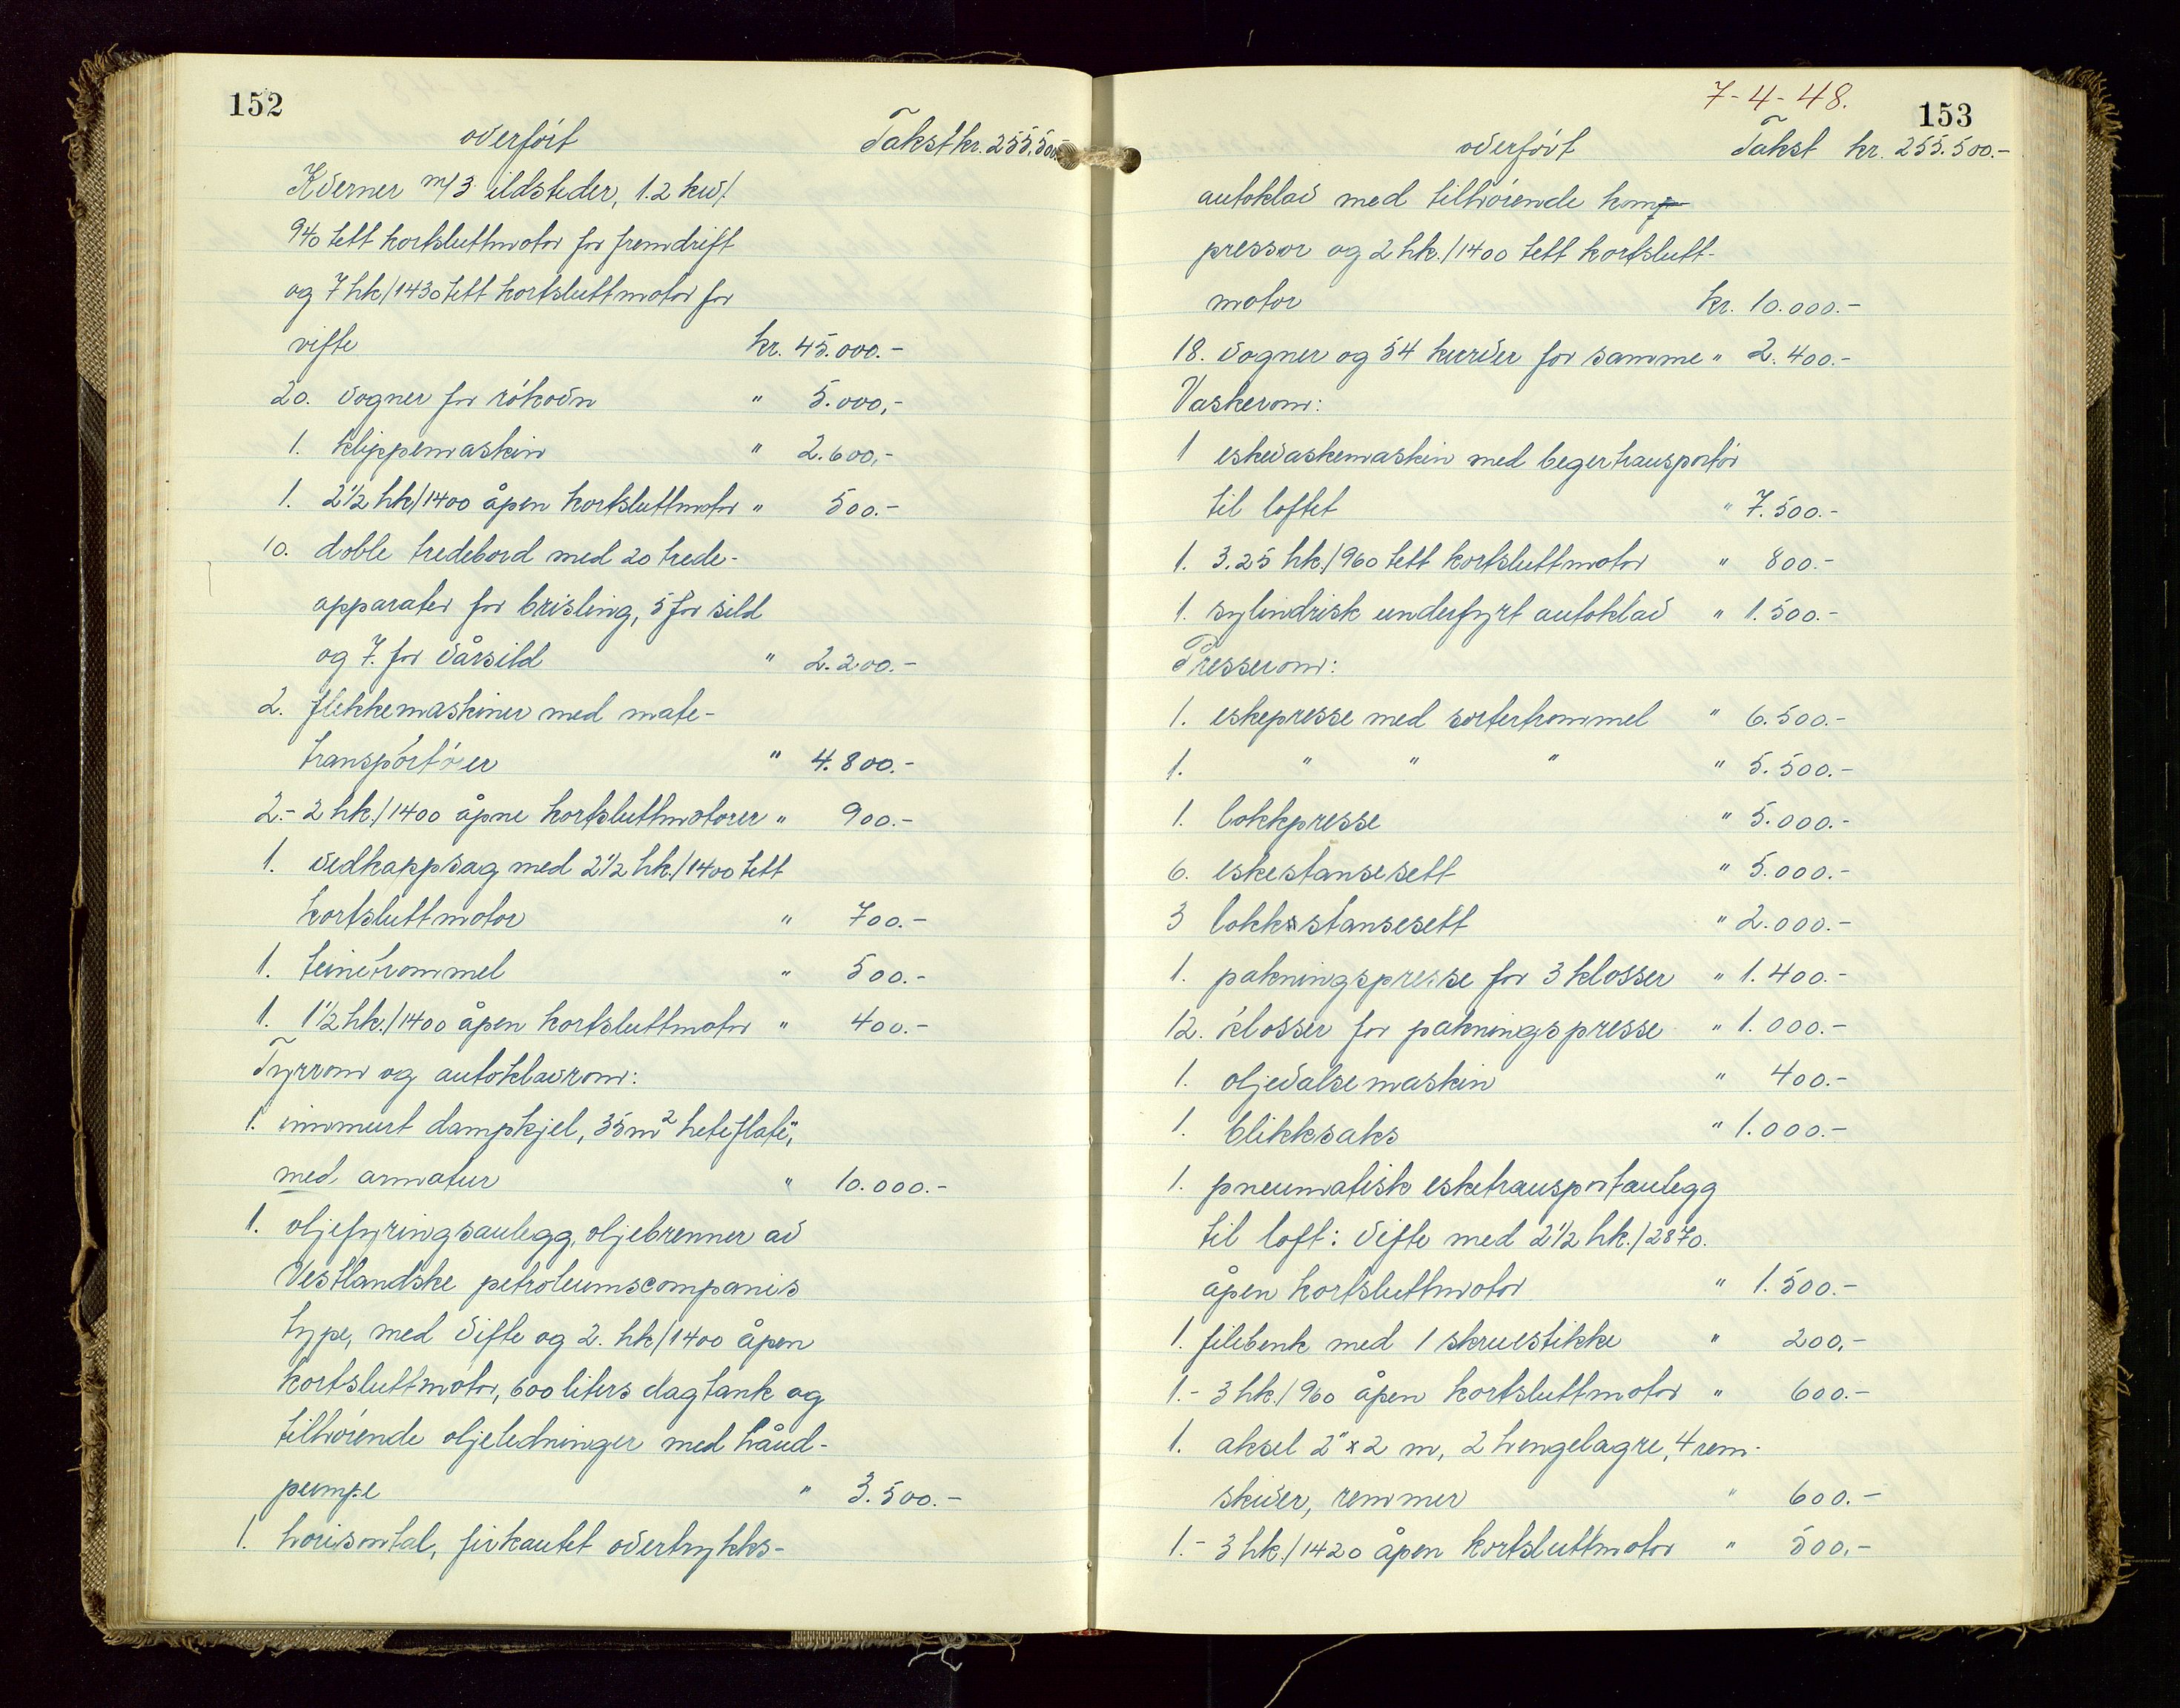 152
overført Takst kr. 255.500.-
Kverner m/3 ildsteder, 1.2 kw/.
940 tett kortsluttmotor for fremdrift
og 7 hk/1430 tett kortsluttmotor for
vifte kr. 45.000.-
20. vogner for røkovn " 5.000,-
1. klippemaskin " 2.600,-
1. 2½ hk/1400 åpen kortsluttmotor " 500.-
10. doble tredebord med 20 trede-
apparater for brisling, 5 for sild
og 7. for vårsild " 2.200.-
2. flekkemaskiner med mate-
transportører " 4.800.-
2.- 2 hk./1400 åpne kortsluttmotorer " 900.-
1. vedkappsag med 2½ hk./1400 tett
kortsluttmotor " 700.-
1. teinetrommel " 500.-
1. 1½ hk./1400 åpen kortsluttmotor " 400.-
Fyrrom og autoklavrom:
1. innmurt dampkjel, 35 m² heteflate,
med armatur " 10.000.-
1. oljefyringsanlegg, oljebrenner av
Vestlandske petroleumscompanis
type, med vifte og 2. hk/1400 åpen
kortsluttmotor, 600 liters dagtank og
tilhørende oljeledninger med hånd-
pumpe " 3.500.-
1. horisontal, firkantet overtrykks-
7-4-48.
153
overført Takst kr. 255.500.-
autoklav med tilhørende komp
pressor og 2 hk./1400 tett kortslutt-
motor kr. 10.000.-
18. vogner og 54 kurver for samme " 2.400.-
Vaskerom:
1 eskevaskemaskin med begertransportør
til loftet " 7.500.-
1. 3.25 hk./960 tett kortsluttmotor " 800.-
1. sylindrisk underfyrt autoklav " 1.500.-
Presserom:
1. eskepresse med sortertrommel " 6.500.-
1. " " " " 5.500.-
1. lokkpresse " 5.000.-
6. eskestansesett " 5.000.-
3 lokkstansesett " 2.000.-
1. pakningspresse for 3 klosser " 1.400.-
12. klosser for pakningspresse " 1.000.-
1. oljevalsemaskin " 400.-
1. blikksaks " 1.000.-
1. pneumatisk esketransportanlegg
til loft: vifte med 2½ hk./2870.
åpen kortsluttmotor " 1.500.-
1. filebenk med 1 skruestikke " 200,-
1.- 3 hk./960 åpen kortsluttmotor " 600.-
1. aksel 2" x 2 m, 2 hengelagre, 4 rem-
skiver, remmer " 600.-
1.- 3 hk./1420 åpen kortsluttmotor " 500,-